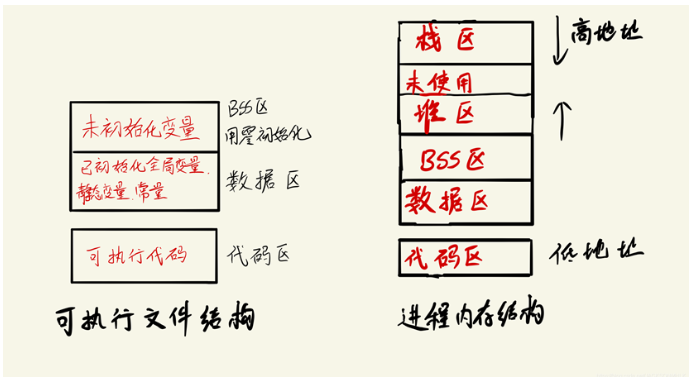 未初始化变量
BSS区
用零初始化
已初始化全局变量、
静态变量、常量
数据区
可执行代码
代码区
可执行文件结构
栈区
高地址
未使用
堆区
BSS区
数据区
代码区
低地址
进程内存结构